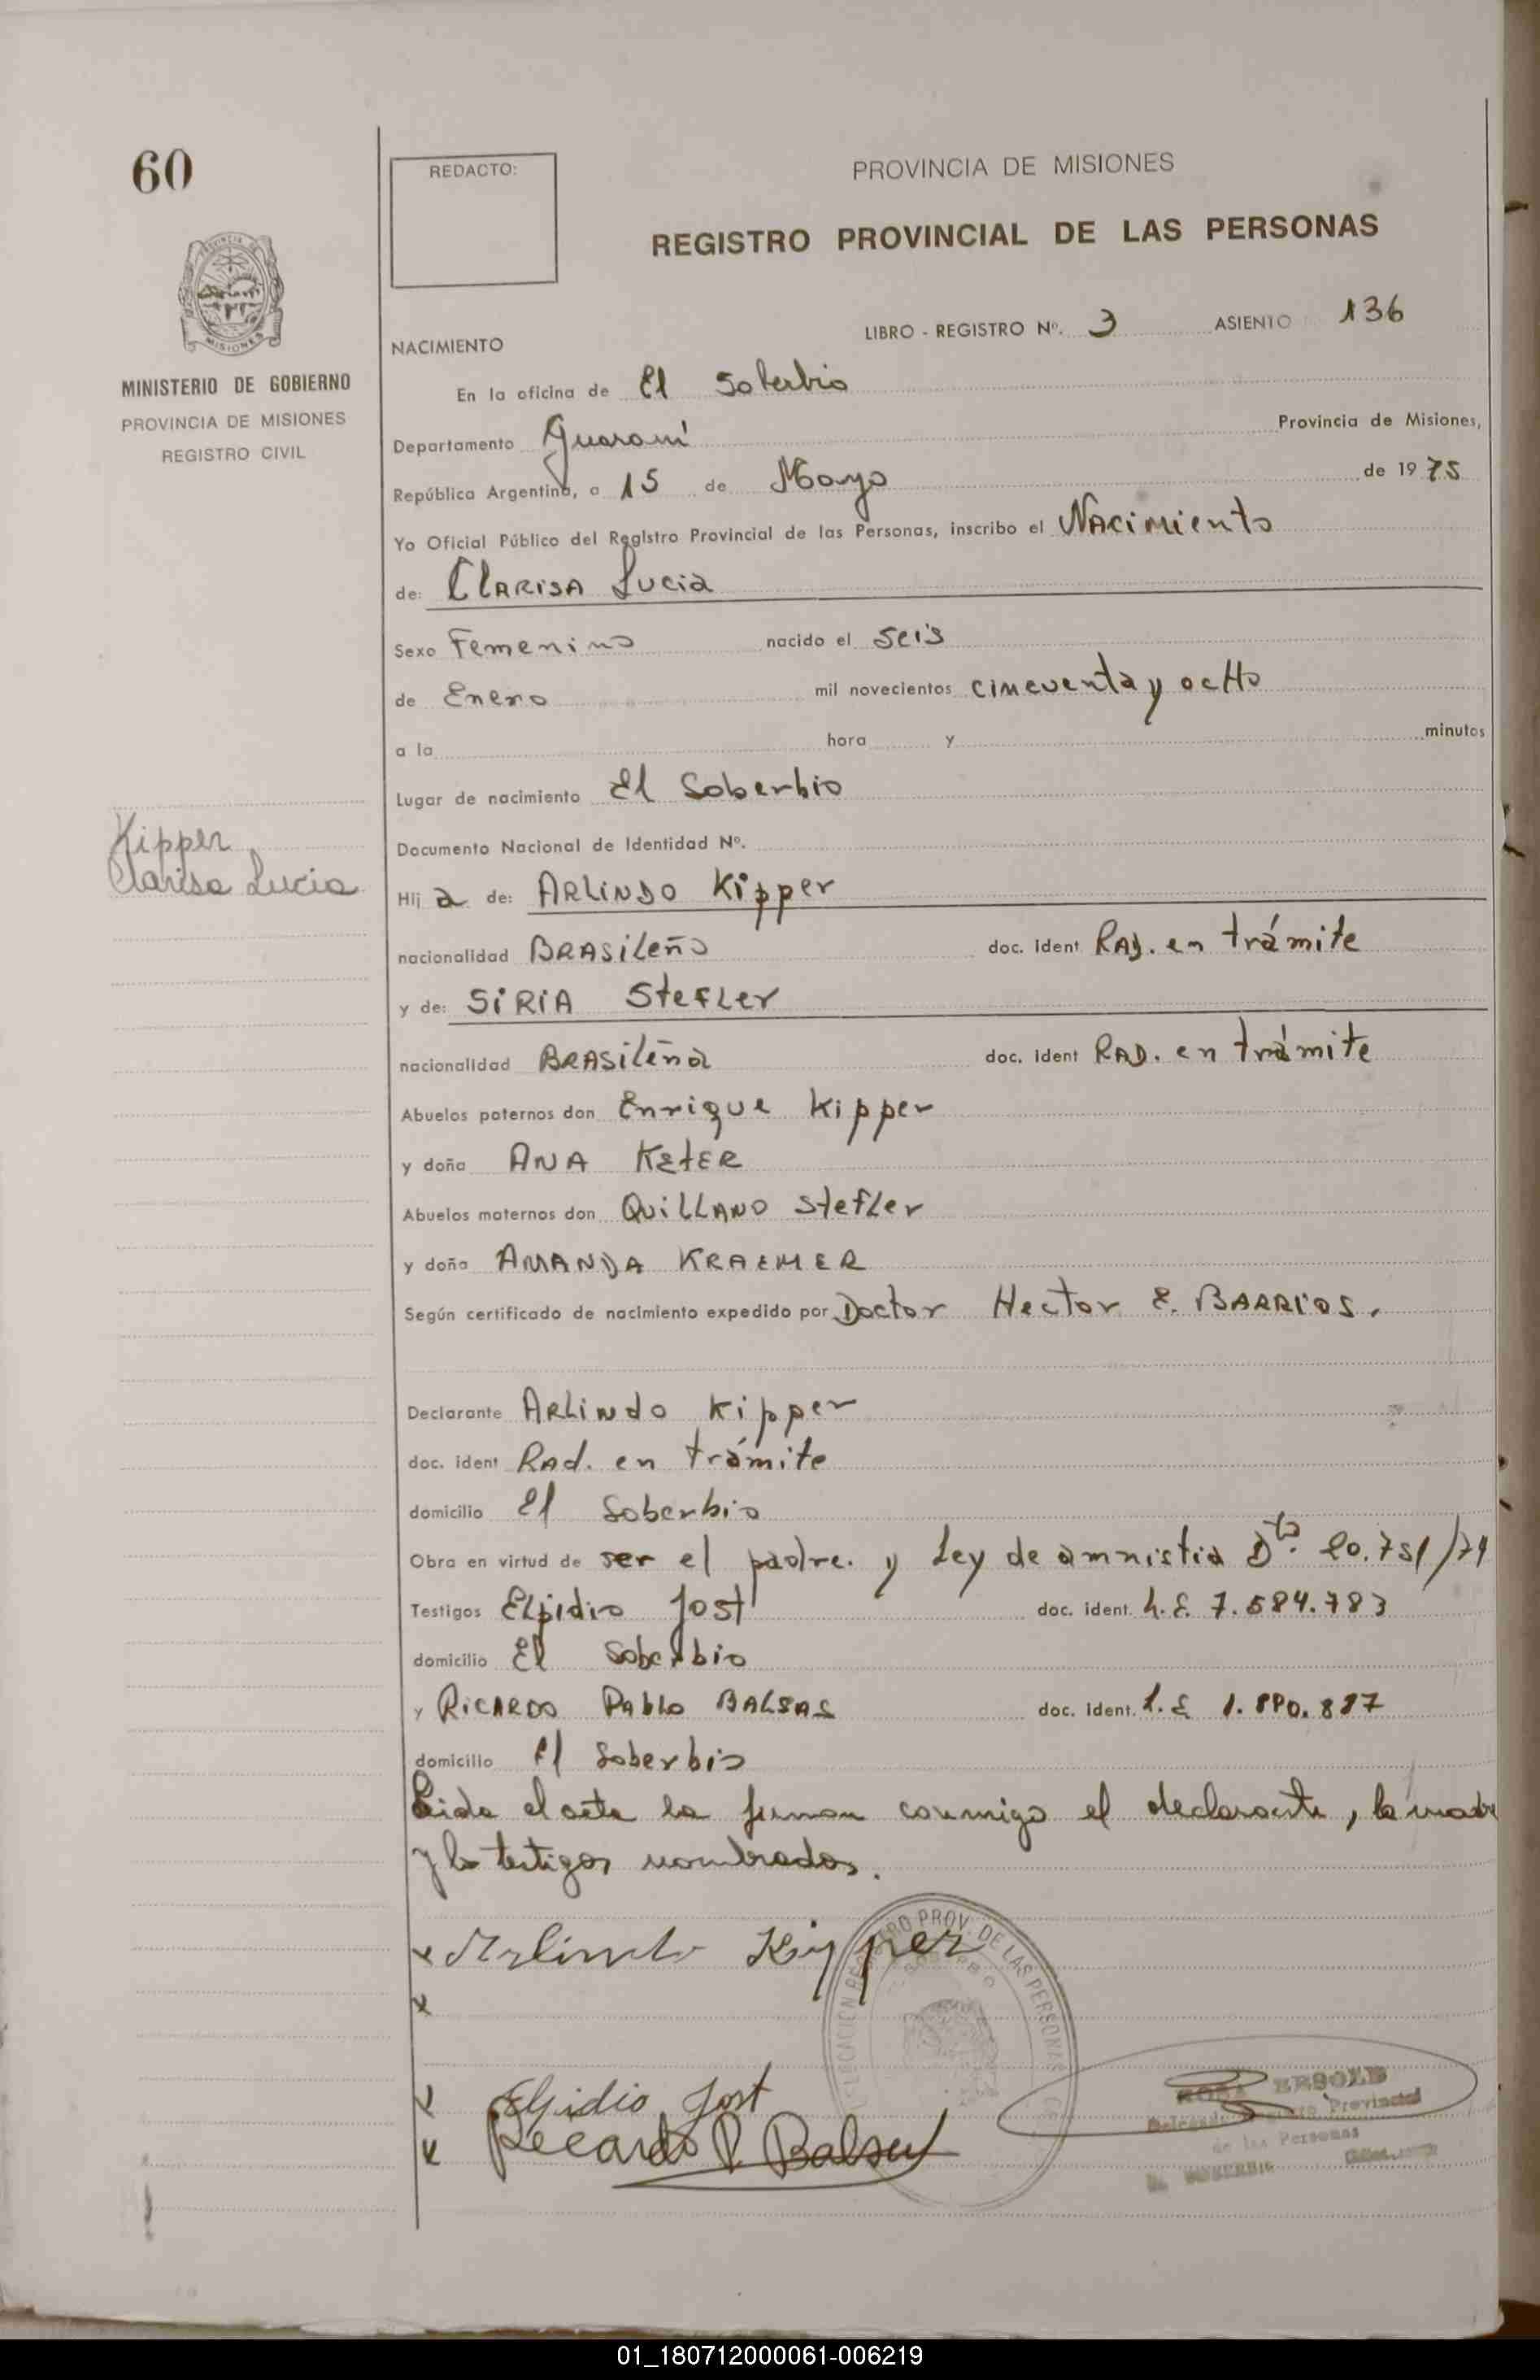 60
REDACTO:
PROVINCIA DE MISIONES
REGISTRO PROVINCIAL DE LAS PERSONAS
MISIONES
MINISTERIO DE GOBIERNO
PROVINCIA DE MISIONES
REGISTRO CIVIL
LIBRO - REGISTRO Nº. 3 ASIENTO 136
NACIMIENTO
En la oficina de El Soberbio
Departamento Guaraní Provincia de Misiones,
República Argentina, a 15 de Mayo de 1975
Yo Oficial Público del Registro Provincial de las Personas, inscribo el NACimiento
de: CLARISA Lucia
Sexo Femenino nacido el seis
de Enero mil novecientos cincuenta y ocHo
a la hora y minutos
Lugar de nacimiento El Soberbio
Kipper
Clarisa Lucia
Documento Nacional de Identidad Nº.
Hij a de: ARLINDO Kipper
nacionalidad BRASiLeño doc. ident RAD. en trámite
y de: SiRiA SteFLer
nacionalidad BRASiLeña doc. ident RAD. en trámite
Abuelos paternos don Enrique Kipper
y doña ANA KEtER
Abuelos maternos don QuiLLANO SteFLer
y doña AMANDA KRAEMER
Según certificado de nacimiento expedido por Doctor Hector E. BARRIOS.
Declarante ARLindo Kipper
doc. ident RAd. en trámite
domicilio El Soberbio
Obra en virtud de ser el padre. y Ley de amnistia Dto. 20.751/74
Testigos ELpidio Jost doc. ident. L.E. 7.584.783
domicilio El Soberbio
y RiCARDO PAbLo BALSAS doc. ident. L.E 1.880.887
domicilio El Soberbio
Leida el acta la firman conmigo el declarante, la madre
y los testigos nombrados.
x Arlindo Kipper
x
x Elpidio Jost
x Recardo P. Balsas
REGISTRO PROV. DE LAS PERSONAS
ROSA
Delegado Registro Provincial
de las Personas
EL SOBERBIO
01_180712000061-006219